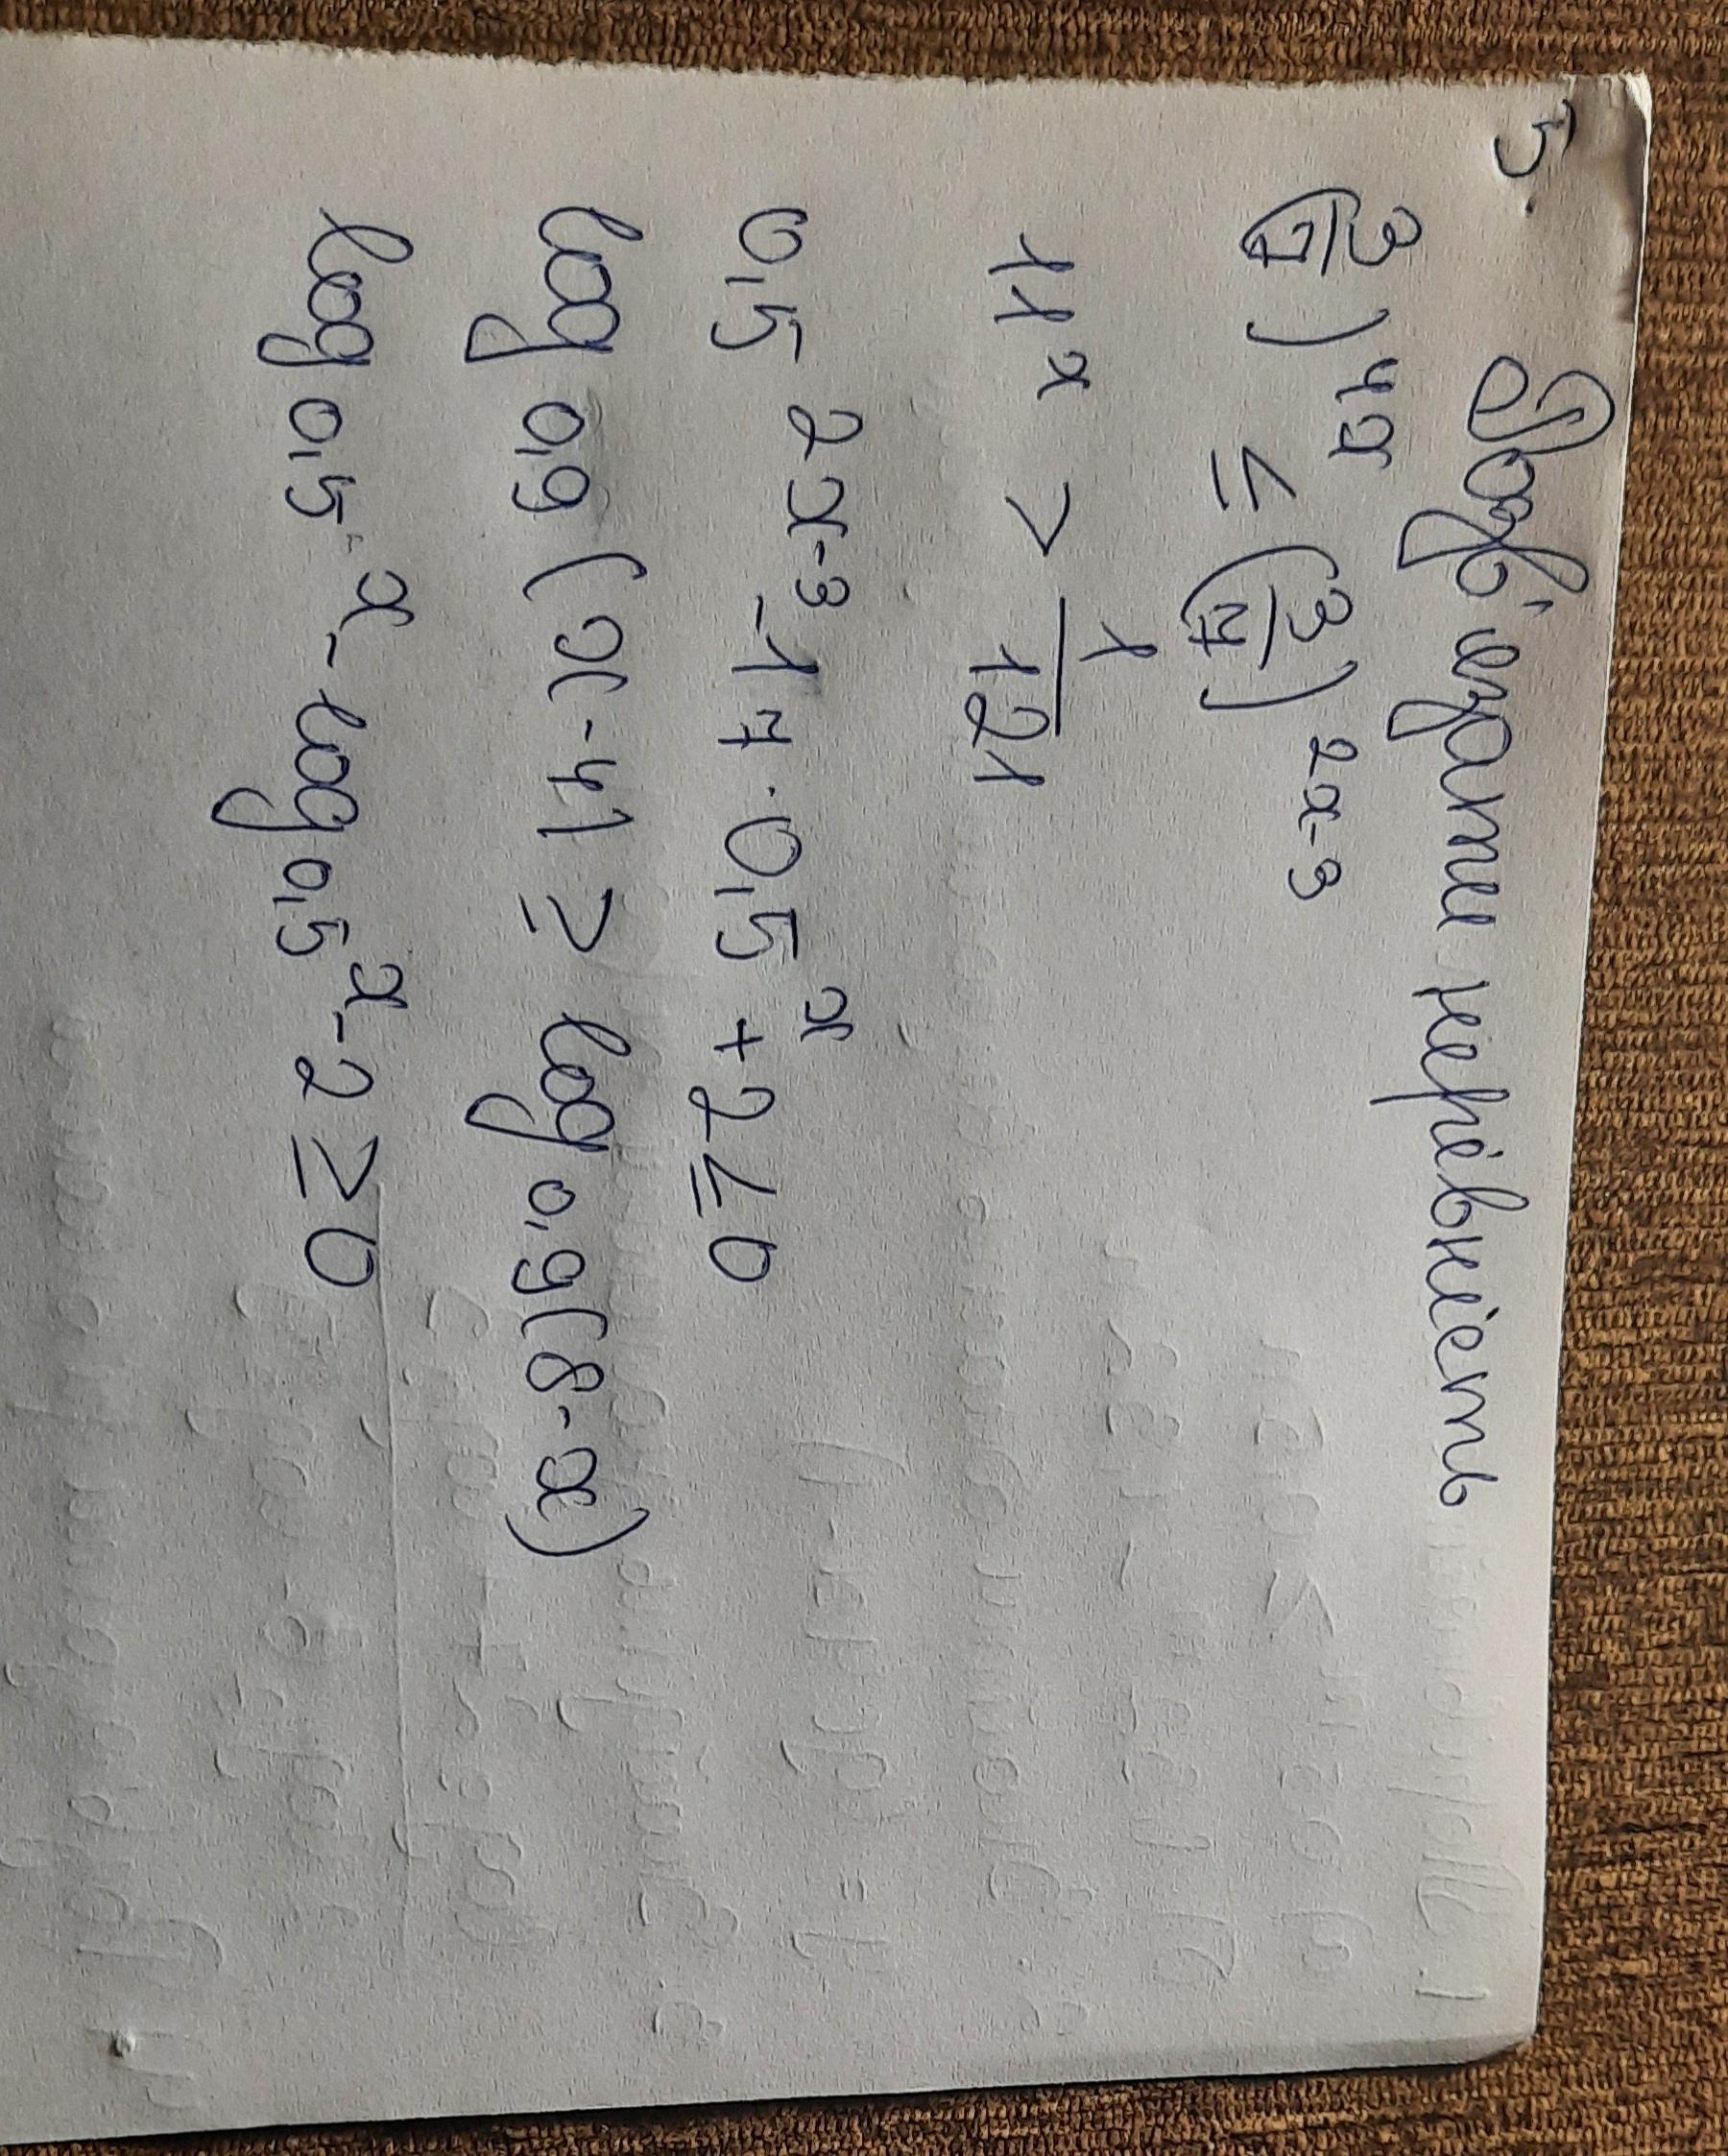 5.
Розв'язати нерівність
(3/7)^4x ≤ (3/7)^2x-3
11^x > 1/121
0,5^2x-3 - 17 · 0,5^x + 2 ≤ 0
log 0,9 (x-4) ≥ log 0,9 (8-x)
log 0,5^x - log 0,5^x - 2 ≥ 0